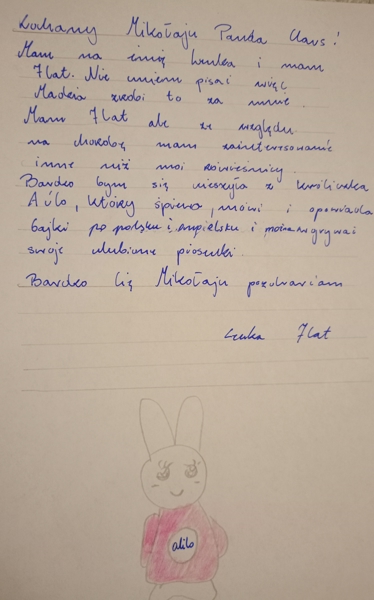 Kochany Mikołaju Panda Claus!
Mam na imię Lenka i mam
7 lat. Nie umiem pisać więc
Madzia zrobi to za mnie.
Mam 7 lat ale ze względu
na chorobę mam zainteresowanie
inne niż moi rówieśnicy.
Bardzo bym się cieszyła z króliczka
Alilo, który śpiewa, mówi i opowiada
bajki po polsku i angielsku i można wgrywać
swoje ulubione piosenki.
Bardzo Cię Mikołaju pozdrawiam
Lenka 7 lat
alilo